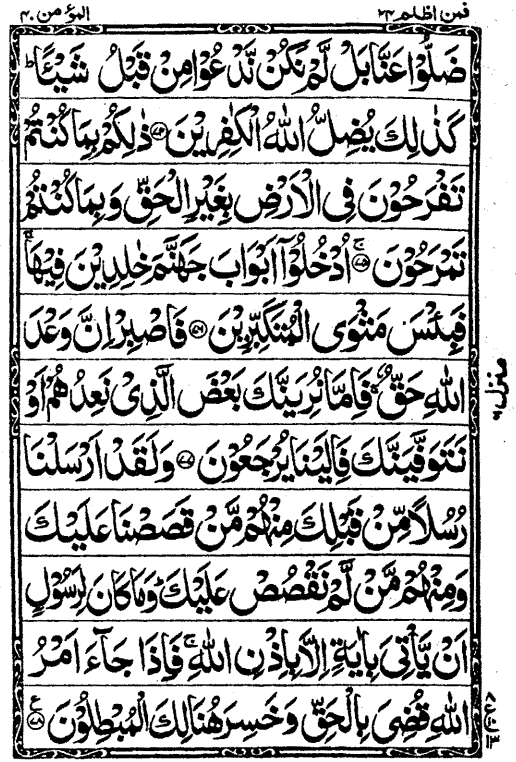 فمن اظلم ۲۴
المؤمن ۴۰
ضَلُّوْا عَنَّا بَلْ لَّمْ نَكُنْ نَّدْعُوْا مِنْ قَبْلُ شَيْـًٔا ؕ
كَذٰلِكَ يُضِلُّ اللّٰهُ الْكٰفِرِيْنَ ﴿۷۴﴾ ذٰلِكُمْ بِمَا كُنْتُمْ
تَفْرَحُوْنَ فِى الْاَرْضِ بِغَيْرِ الْحَقِّ وَبِمَا كُنْتُمْ
تَمْرَحُوْنَ ﴿۷۵﴾ۚ اُدْخُلُوْۤا اَبْوَابَ جَهَنَّمَ خٰلِدِيْنَ فِيْهَا ۚ
فَبِئْسَ مَثْوَى الْمُتَكَبِّرِيْنَ ﴿۷۶﴾ فَاصْبِرْ اِنَّ وَعْدَ
اللّٰهِ حَقٌّ ۚ فَاِمَّا نُرِيَنَّكَ بَعْضَ الَّذِىْ نَعِدُهُمْ اَوْ
نَتَوَفَّيَنَّكَ فَاِلَيْنَا يُرْجَعُوْنَ ﴿۷۷﴾ وَلَقَدْ اَرْسَلْنَا
رُسُلًا مِّنْ قَبْلِكَ مِنْهُمْ مَّنْ قَصَصْنَا عَلَيْكَ
وَمِنْهُمْ مَّنْ لَّمْ نَقْصُصْ عَلَيْكَ ؕ وَمَا كَانَ لِرَسُوْلٍ
اَنْ يَّاْتِىَ بِاٰيَةٍ اِلَّا بِاِذْنِ اللّٰهِ ۚ فَاِذَا جَآءَ اَمْرُ
اللّٰهِ قُضِىَ بِالْحَقِّ وَخَسِرَ هُنَالِكَ الْمُبْطِلُوْنَ ﴿۷۸﴾ ع
منزل ۶